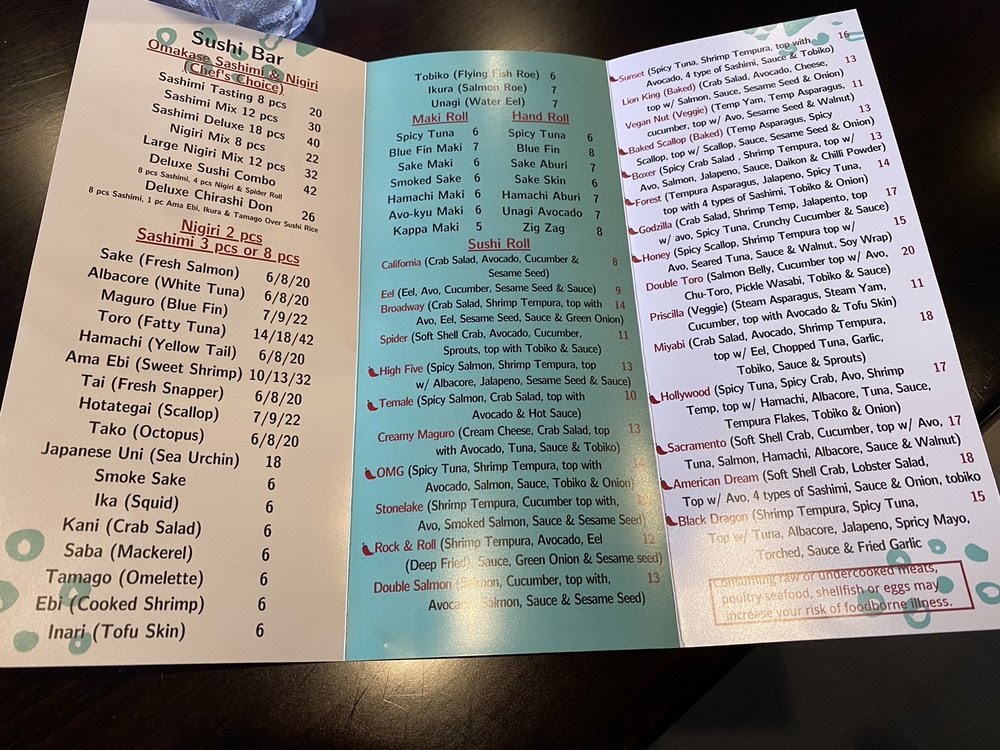 Sushi Bar
Omakase Sashimi & Nigiri
(Chef's Choice)
Sashimi Tasting 8 pcs 20
Sashimi Mix 12 pcs 30
Sashimi Deluxe 18 pcs 40
Nigiri Mix 8 pcs 22
Large Nigiri Mix 12 pcs 32
Deluxe Sushi Combo 42
8 pcs Sashimi, 4 pcs Nigiri & Spider Roll
Deluxe Chirashi Don 26
8 pcs Sashimi, 1 pc Ama Ebi, Ikura & Tamago Over Sushi Rice
Nigiri 2 pcs
Sashimi 3 pcs or 8 pcs
Sake (Fresh Salmon) 6/8/20
Albacore (White Tuna) 6/8/20
Maguro (Blue Fin) 7/9/22
Toro (Fatty Tuna) 14/18/42
Hamachi (Yellow Tail) 6/8/20
Ama Ebi (Sweet Shrimp) 10/13/32
Tai (Fresh Snapper) 6/8/20
Hotategai (Scallop) 7/9/22
Tako (Octopus) 6/8/20
Japanese Uni (Sea Urchin) 18
Smoke Sake 6
Ika (Squid) 6
Kani (Crab Salad) 6
Saba (Mackerel) 6
Tamago (Omelette) 6
Ebi (Cooked Shrimp) 6
Inari (Tofu Skin) 6
Tobiko (Flying Fish Roe) 6
Ikura (Salmon Roe) 7
Unagi (Water Eel) 7
Maki Roll
Spicy Tuna 6
Blue Fin Maki 7
Sake Maki 6
Smoked Sake 6
Hamachi Maki 6
Avo-kyu Maki 6
Kappa Maki 5
Hand Roll
Spicy Tuna 6
Blue Fin 8
Sake Aburi 7
Sake Skin 6
Hamachi Aburi 7
Unagi Avocado 7
Zig Zag 8
Sushi Roll
California (Crab Salad, Avocado, Cucumber & 8
Sesame Seed)
Eel (Eel, Avo, Cucumber, Sesame Seed & Sauce) 9
Broadway (Crab Salad, Shrimp Tempura, top with 14
Avo, Eel, Sesame Seed, Sauce & Green Onion)
Spider (Soft Shell Crab, Avocado, Cucumber, 11
Sprouts, top with Tobiko & Sauce)
High Five (Spicy Salmon, Shrimp Tempura, top 13
w/ Albacore, Jalapeno, Sesame Seed & Sauce)
Temale (Spicy Salmon, Crab Salad, top with 10
Avocado & Hot Sauce)
Creamy Maguro (Cream Cheese, Crab Salad, top 13
with Avocado, Tuna, Sauce & Tobiko)
OMG (Spicy Tuna, Shrimp Tempura, top with
Avocado, Salmon, Sauce, Tobiko & Onion)
Stonelake (Shrimp Tempura, Cucumber top with,
Avo, Smoked Salmon, Sauce & Sesame Seed)
Rock & Roll (Shrimp Tempura, Avocado, Eel 12
(Deep Fried), Sauce, Green Onion & Sesame seed)
Double Salmon (Salmon, Cucumber, top with, 13
Avocado, Salmon, Sauce & Sesame Seed)
Sunset (Spicy Tuna, Shrimp Tempura, top with 16
Avocado, 4 type of Sashimi, Sauce & Tobiko)
Lion King (Baked) (Crab Salad, Avocado, Cheese, 13
top w/ Salmon, Sauce, Sesame Seed & Onion)
Vegan Nut (Veggie) (Temp Yam, Temp Asparagus, 11
cucumber, top w/ Avo, Sesame Seed & Walnut)
Baked Scallop (Baked) (Temp Asparagus, Spicy 13
Scallop, top w/ Scallop, Sauce, Sesame Seed & Onion)
Boxer (Spicy Crab Salad , Shrimp Tempura, top w/ 13
Avo, Salmon, Jalapeno, Sauce, Daikon & Chilli Powder)
Forest (Tempura Asparagus, Jalapeno, Spicy Tuna, 14
top with 4 types of Sashimi, Tobiko & Onion)
Godzilla (Crab Salad, Shrimp Temp, Jalapento, top 17
w/ avo, Spicy Tuna, Crunchy Cucumber & Sauce)
Honey (Spicy Scallop, Shrimp Tempura top w/ 15
Avo, Seared Tuna, Sauce & Walnut, Soy Wrap)
Double Toro (Salmon Belly, Cucumber top w/ Avo, 20
Chu-Toro, Pickle Wasabi, Tobiko & Sauce)
Priscilla (Veggie) (Steam Asparagus, Steam Yam, 11
Cucumber, top with Avocado & Tofu Skin)
Miyabi (Crab Salad, Avocado, Shrimp Tempura, 18
top w/ Eel, Chopped Tuna, Garlic,
Tobiko, Sauce & Sprouts)
Hollywood (Spicy Tuna, Spicy Crab, Avo, Shrimp 17
Temp, top w/ Hamachi, Albacore, Tuna, Sauce,
Tempura Flakes, Tobiko & Onion)
Sacramento (Soft Shell Crab, Cucumber, top w/ Avo, 17
Tuna, Salmon, Hamachi, Albacore, Sauce & Walnut)
American Dream (Soft Shell Crab, Lobster Salad, 18
Top w/ Avo, 4 types of Sashimi, Sauce & Onion, tobiko
Black Dragon (Shrimp Tempura, Spicy Tuna, 15
Top w/ Tuna, Albacore, Jalapeno, Spricy Mayo,
Torched, Sauce & Fried Garlic
Consuming raw or undercooked meats,
poultry seafood, shellfish or eggs may
increase your risk of foodborne illness.